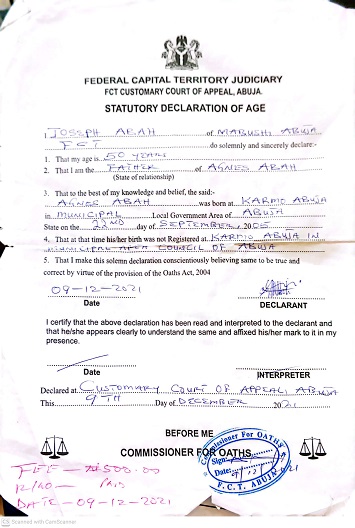 FEDERAL CAPITAL TERRITORY JUDICIARY
FCT CUSTOMARY COURT OF APPEAL, ABUJA.
STATUTORY DECLARATION OF AGE
I, JOSEPH ABAH of MABUSHI ABUJA
FCT do solemnly and sincerely declare:-
1. That my age is 50 YEARS
2. That I am the FATHER of AGNES ABAH
(State of relationship)
3. That to the best of my knowledge and belief, the said:-
AGNES ABAH was born at KARMO ABUJA
in MUNICIPAL Local Government Area of ABUJA
State on the 22ND day of SEPTEMBER 2005
4. That at that time his/her birth was not Registered at KARMO ABUJA IN
MUNICIPAL AREA COUNCIL OF ABUJA
5. That I make this solemn declaration conscientiously believing same to be true and
correct by virtue of the provision of the Oaths Act, 2004
09-12-2021
Date DECLARANT
I certify that the above declaration has been read and interpreted to the declarant and
that he/she appears clearly to understand the same and affixed his/her mark to it in my
presence.
Date INTERPRETER
Declared at CUSTOMARY COURT OF APPEAL, ABUJA
This 9TH Day of DECEMBER 2021
BEFORE ME
COMMISSIONER FOR OATHS
Commissioner For OATHS
Sign:
Date:
F.C.T. ABUJA
FEE — ₦500.00
DATE - 09-12-2021
CS Scanned with CamScanner